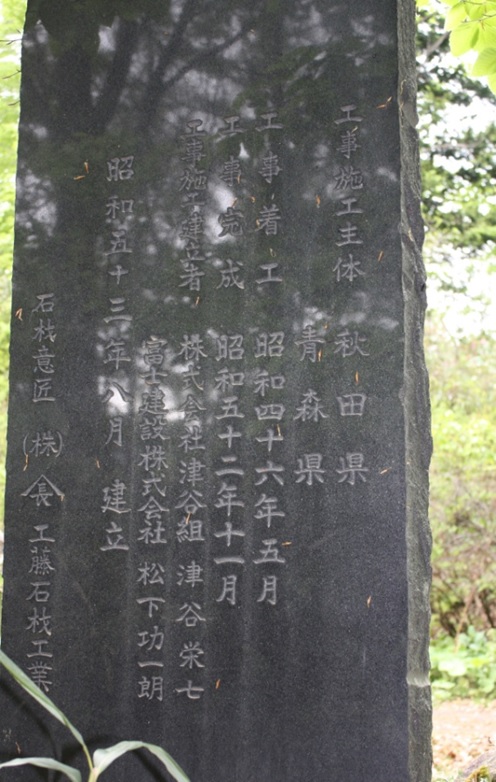 工事施工主体 秋田県
青森県
工事着工 昭和四十六年五月
工事完成 昭和五十二年十一月
工事施工建立者 株式会社津谷組 津谷栄七
富士建設株式会社 松下功一朗
昭和五十三年八月 建立
石材意匠 (株) 工藤石材工業